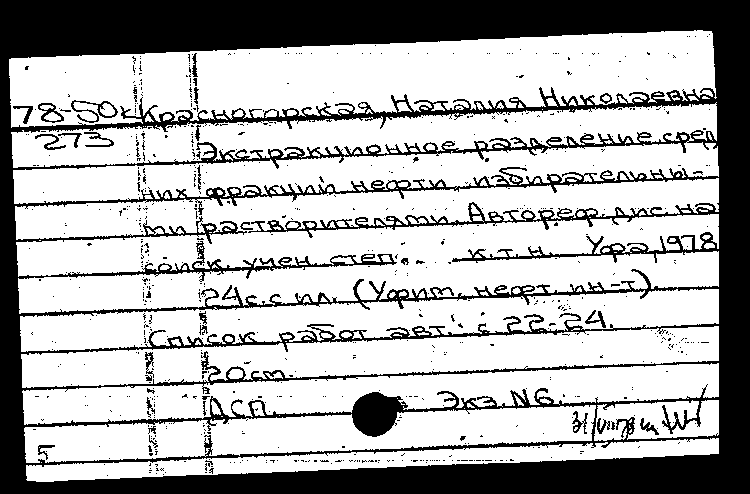 78-50к Красногорская, Наталия Николаевна
273
Экстракционное разделение сред
них фракций нефти избирательны-
ми растворителями. Автореф. дис. на
соиск. учен. степ. к.т.н. Уфа, 1978
24 с. с ил. (Уфим. нефт. ин-т)
Список работ авт.: с. 22-24.
20 см.
ДСП. Экз. N6.
5